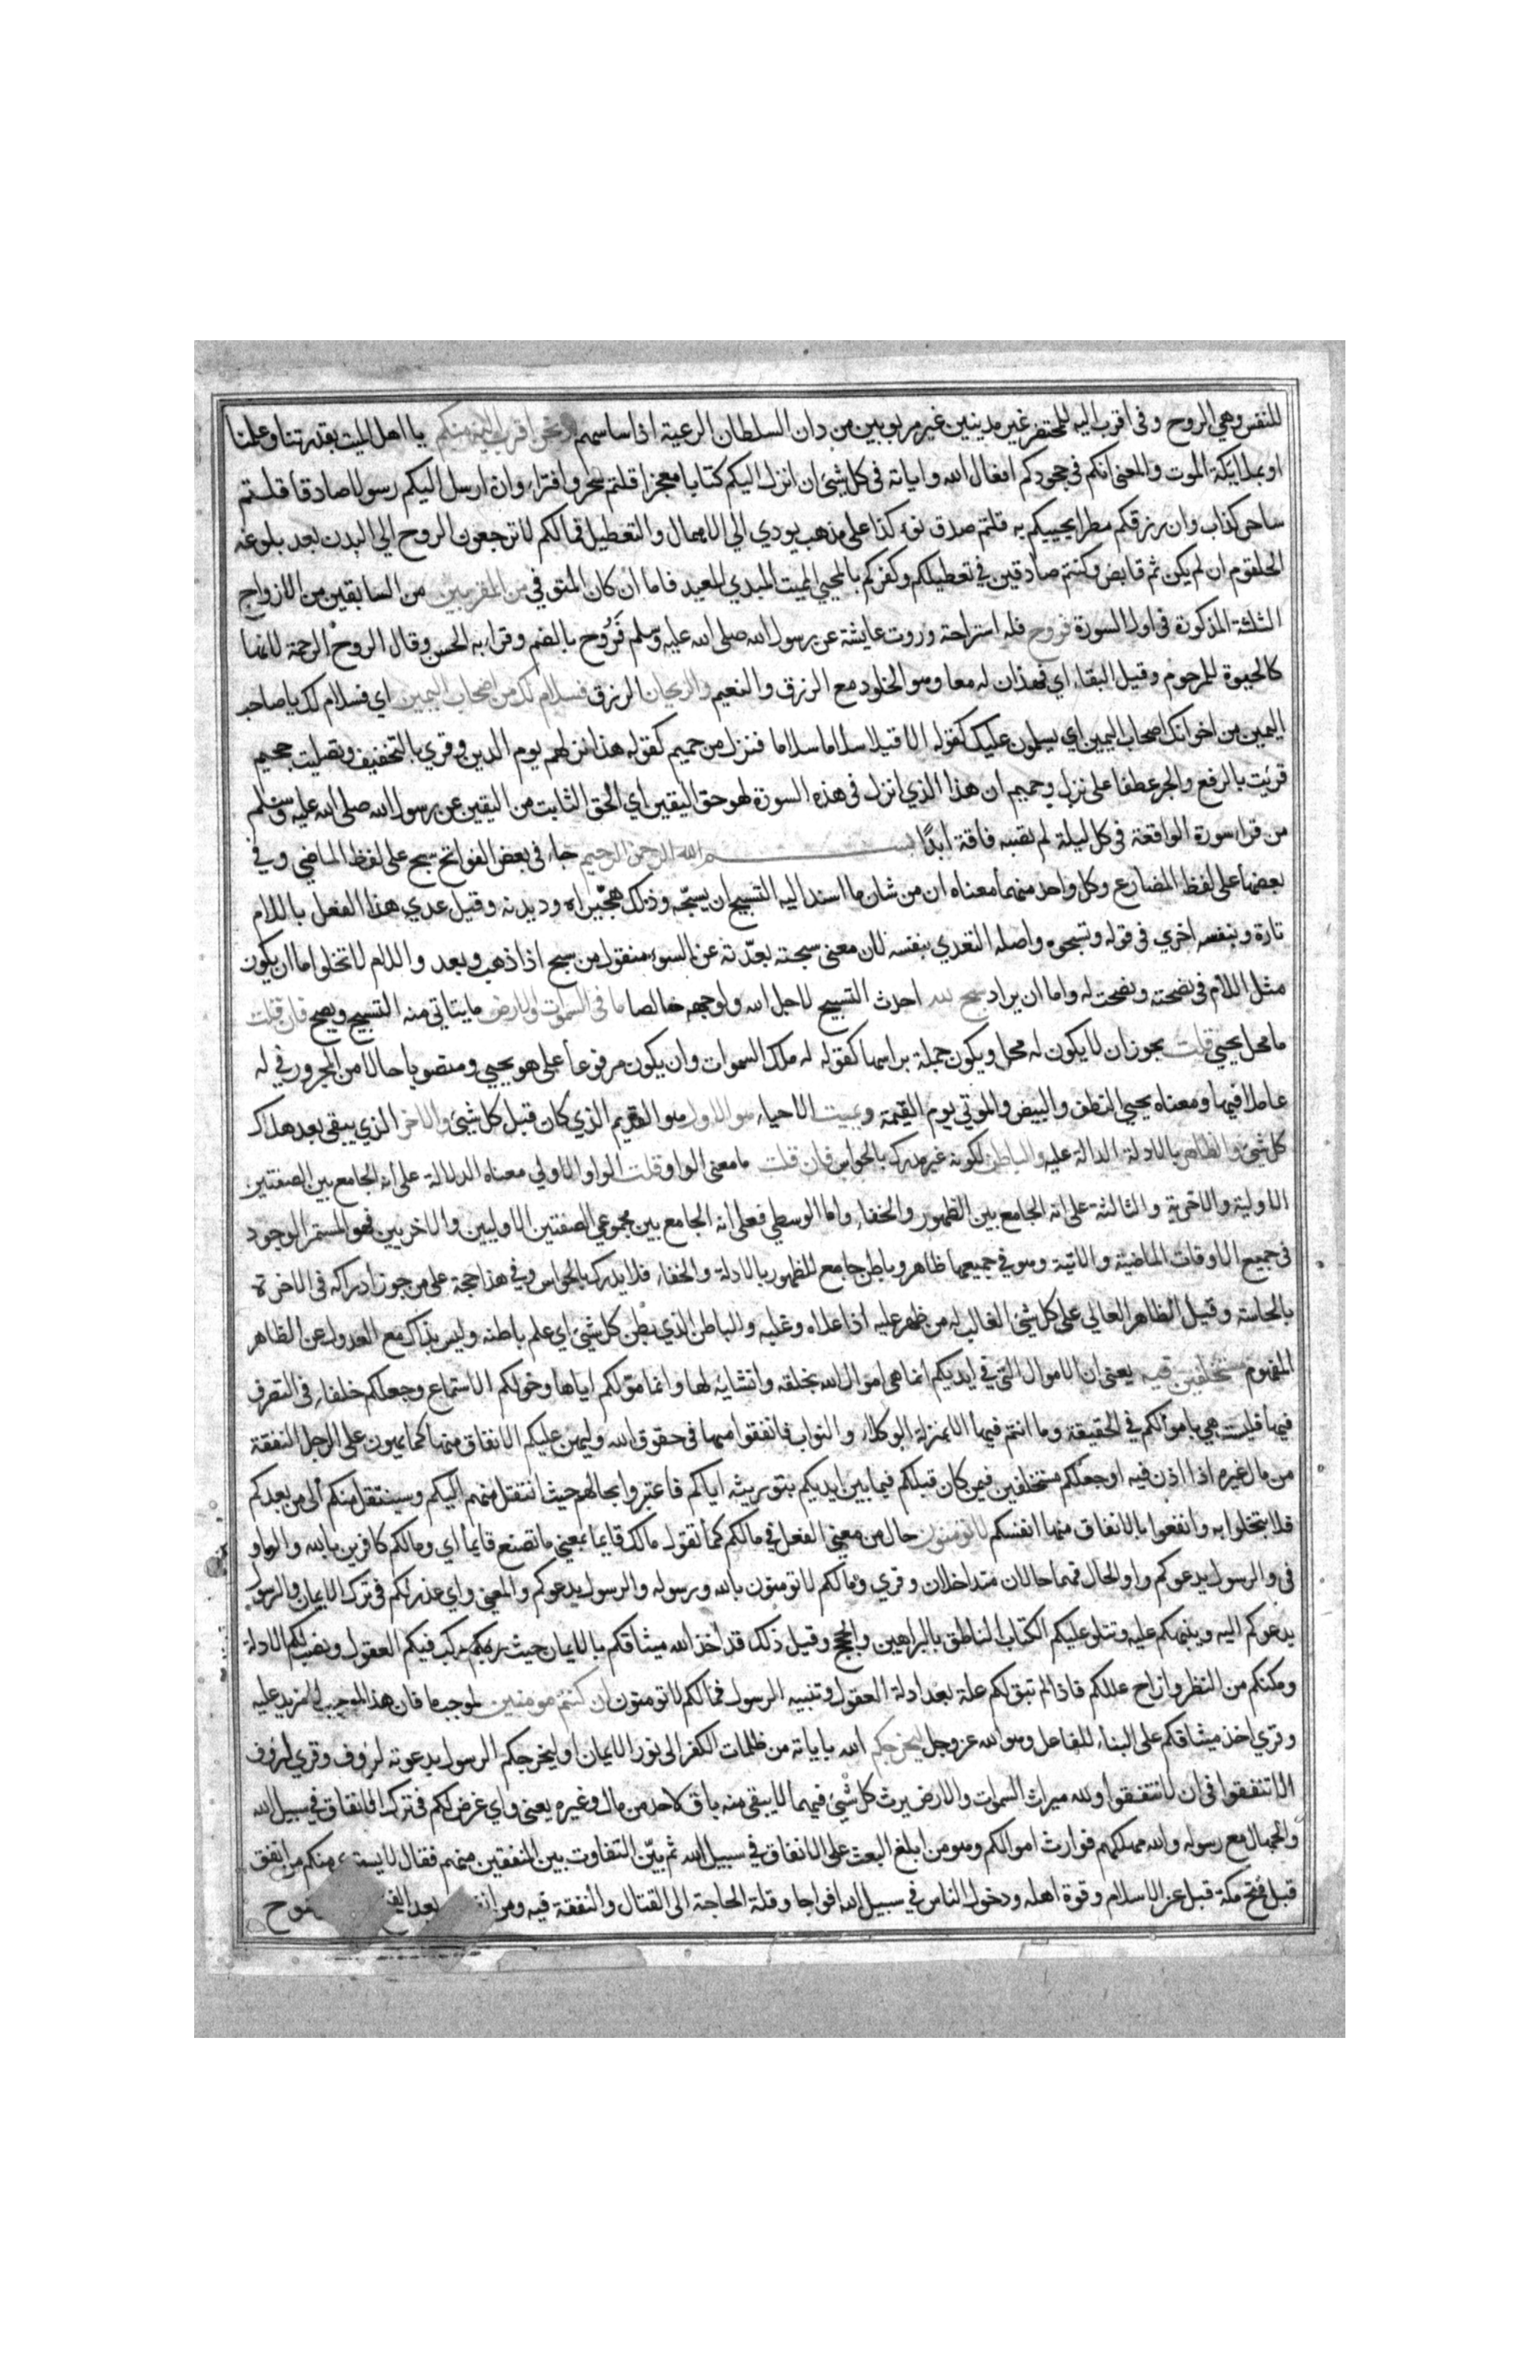 للنفس وهي الروح وفى اقرب اليه للمحتضر غير مدينين غير مربوبين من دان السلطان الرعية اذا ساسهم ونحن اقرب اليه منكم يا اهل الميت بقدرتنا وعلمنا
او بملايكة الموت والمعنى انكم فى جحودكم افعال الله واياته فى كل شئ ان انزل اليكم كتابا معجزا قلتم سحر وافتراء وان ارسل اليكم رسولا صادقا قلتم
ساحر كذاب وان رزقكم مطرا يحييكم به قلتم صدق نوء كذا على مذهب يودي الي الاهمال والتعطيل فمالكم لا ترجعون الروح الي البدن بعد بلوغه
الحلقوم ان لم يكن ثم قابض وكنتم صادقين في تعطيلكم وكفركم بالمحيي المميت المبدي المعيد فاما ان كان المتوفي من المقربين من السابقين من الازواج
الثلثة المذكورة فى اول السورة فروح فله استراحة وروت عايشة عن رسول الله صلى الله عليه وسلم فَرُوح بالضم وقرا به الحسن وقال الروح الرحمة لانها
كالحيوة للمرحوم وقيل البقاء اي فهذان له معا وهو الخلود مع الرزق والنعيم والريحان الرزق فسلام لك من اصحاب اليمين اي فسلام لك يا صاحب
اليمين من اخوانك اصحاب اليمين اي يسلمون عليك كقوله الا قيلا سلاما سلاما فنزل من حميم كقوله هذا نزلهم يوم الدين وقري بالتخفيف وتصليت جحيم
قريت بالرفع والجر عطفا على نزل وحميم ان هذا الذي انزل فى هذه السورة لهو حق اليقين اي الحق الثابت من اليقين عن رسول الله صلى الله عليه وسلم
من قرا سورة الواقعة فى كل ليلة لم تصبه فاقة ابدًا بسم الله الرحمن الرحيم جاء فى بعض الفواتح سبح على لفظ الماضي وفي
بعضها على لفظ المضارع وكل واحد منهما معناه ان من شان ما اسند اليه التسبيح ان يسبّحه وذلك هجّيراه وديدنه وقيل عدي هذا الفعل باللام
تارة وبنفسه اخري في قوله وتسبحوه واصله التعدي بنفسه لان معنى سبحته بعّدته عن السوء منقول من سبح اذا ذهب وبعد واللام لا تخلوا اما ان يكون
مثل اللام فى نصحته ونصحت له واما ان يراد سبح لله احدث التسبيح لاجل الله ولوجهه خالصا ما فى السموات والارض ما يتاتي منه التسبيح ويصح فان قلت
ما محل يحيي قلت يجوز ان لا يكون له محل ويكون جملة براسها كقوله له ملك السموات وان يكون مرفوعا على هو يحيي ومنصوبا حالا من المجرور في له
عاملا فيها ومعناه يحيي النطف والبيض والموتي يوم القيمة ويميت الاحياء هو الاول هو القديم الذي كان قبل كل شئ والاخر الذي يبقي بعد هلاك
كل شئ والظاهر بالادلة الدالة عليه والباطن لكونه غير مدرك بالحواس فان قلت ما معنى الواو قلت الواو الاولي معناه الدلالة على انه الجامع بين الصفتين
الاولية والاخرية والثالثة على انه الجامع بين الظهور والخفاء واما الوسطي فعلى انه الجامع بين مجموعي الصفتين الاوليين والاخريين فهو المستمر الوجود
فى جميع الاوقات الماضية والاتية وهو في جميعها ظاهر وباطن جامع للظهور بالادلة والخفاء فلا يدرك بالحواس وفي هذا حجة على من جوز ادراكه فى الاخرة
بالحاسة وقيل الظاهر العالي على كل شئ الغالب له من ظهر عليه اذا علاه وغلبه والباطن الذي بَطَن كل شئ اي علم باطنه وليس بذاك مع العدول عن الظاهر
المفهوم مستخلفين فيه يعنى ان الاموال التي في ايديكم انما هي اموال الله بخلقه وانشايه لها وانما موّلكم اياها وخولكم الاستمتاع وجعلكم خلفاء فى التصرف
فيها فليست هي باموالكم في الحقيقة وما انتم فيها الا بمنزلة الوكلاء والنواب فانفقوا منها فى حقوق الله وليهن عليكم الانفاق منها كما يهون على الرجل النفقة
من مال غيره اذا اذن فيه او جعلكم مستخلفين فيمن كان قبلكم فيما بين ايديكم بتوريثه اياكم فاعتبروا بحالهم حيث انتقل منهم اليكم وسينتقل منكم الى من بعدكم
فلا تبخلوا به وانفعوا بالانفاق منها انفسكم لا تومنون حال من معنى الفعل في مالكم كما تقول مالك قايما بمعنى ما تصنع قايما اي ومالكم كافرين بالله والواو
في والرسول يدعوكم واو الحال فهما حالان متداخلان وقري ومالكم لا تومنون بالله ورسوله والرسول يدعوكم والمعنى واي عذر لكم فى ترك الايمان والرسول
يدعوكم اليه وينبهكم عليه ويتلو عليكم الكتاب الناطق بالبراهين والحجج وقيل ذلك قد اخذ الله ميثاقكم بالايمان حيث ركب فيكم العقول ونصب لكم الادلة
ومكنكم من النظر وازاح عللكم فاذا لم تبق لكم علة بعد ادلة العقول وتنبيه الرسول فمالكم لا تومنون ان كنتم مومنين لموجب ما فان هذا الموجب لا مزيد عليه
وقري اخذ ميثاقكم على البناء للفاعل وهو الله عز وجل ليخرجكم الله باياته من ظلمات الكفر الى نور الايمان او ليخرجكم الرسول بدعوته لروف وقري لروف
الا تنفقوا فى ان لا تنفقوا ولله ميراث السموات والارض يرث كل شئ فيهما لا يبقى منه باق لاحد من مال وغيره يعني واي غرض لكم فى ترك الانفاق في سبيل الله
والجهاد مع رسوله والله مهلككم فوارث اموالكم وهو من ابلغ البعث على الانفاق في سبيل الله ثم بيّن التفاوت بين المنفقين منهم فقال لا يستوي منكم من انفق
قبل فتح مكة قبل عز الاسلام وقوة اهله ودخول الناس في سبيل الله افواجا وقلة الحاجة الى القتال والنفقة فيه ومن انفق بعد